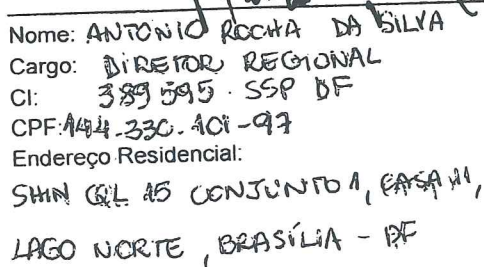 Nome: ANTONIO ROCHA DA SILVA
Cargo: DIRETOR REGIONAL
CI: 389 595 - SSP DF
CPF: 144-330-101-97
Endereço Residencial:
SHIN QL 15 CONJUNTO 1, CASA 11,
LAGO NORTE, BRASÍLIA - DF